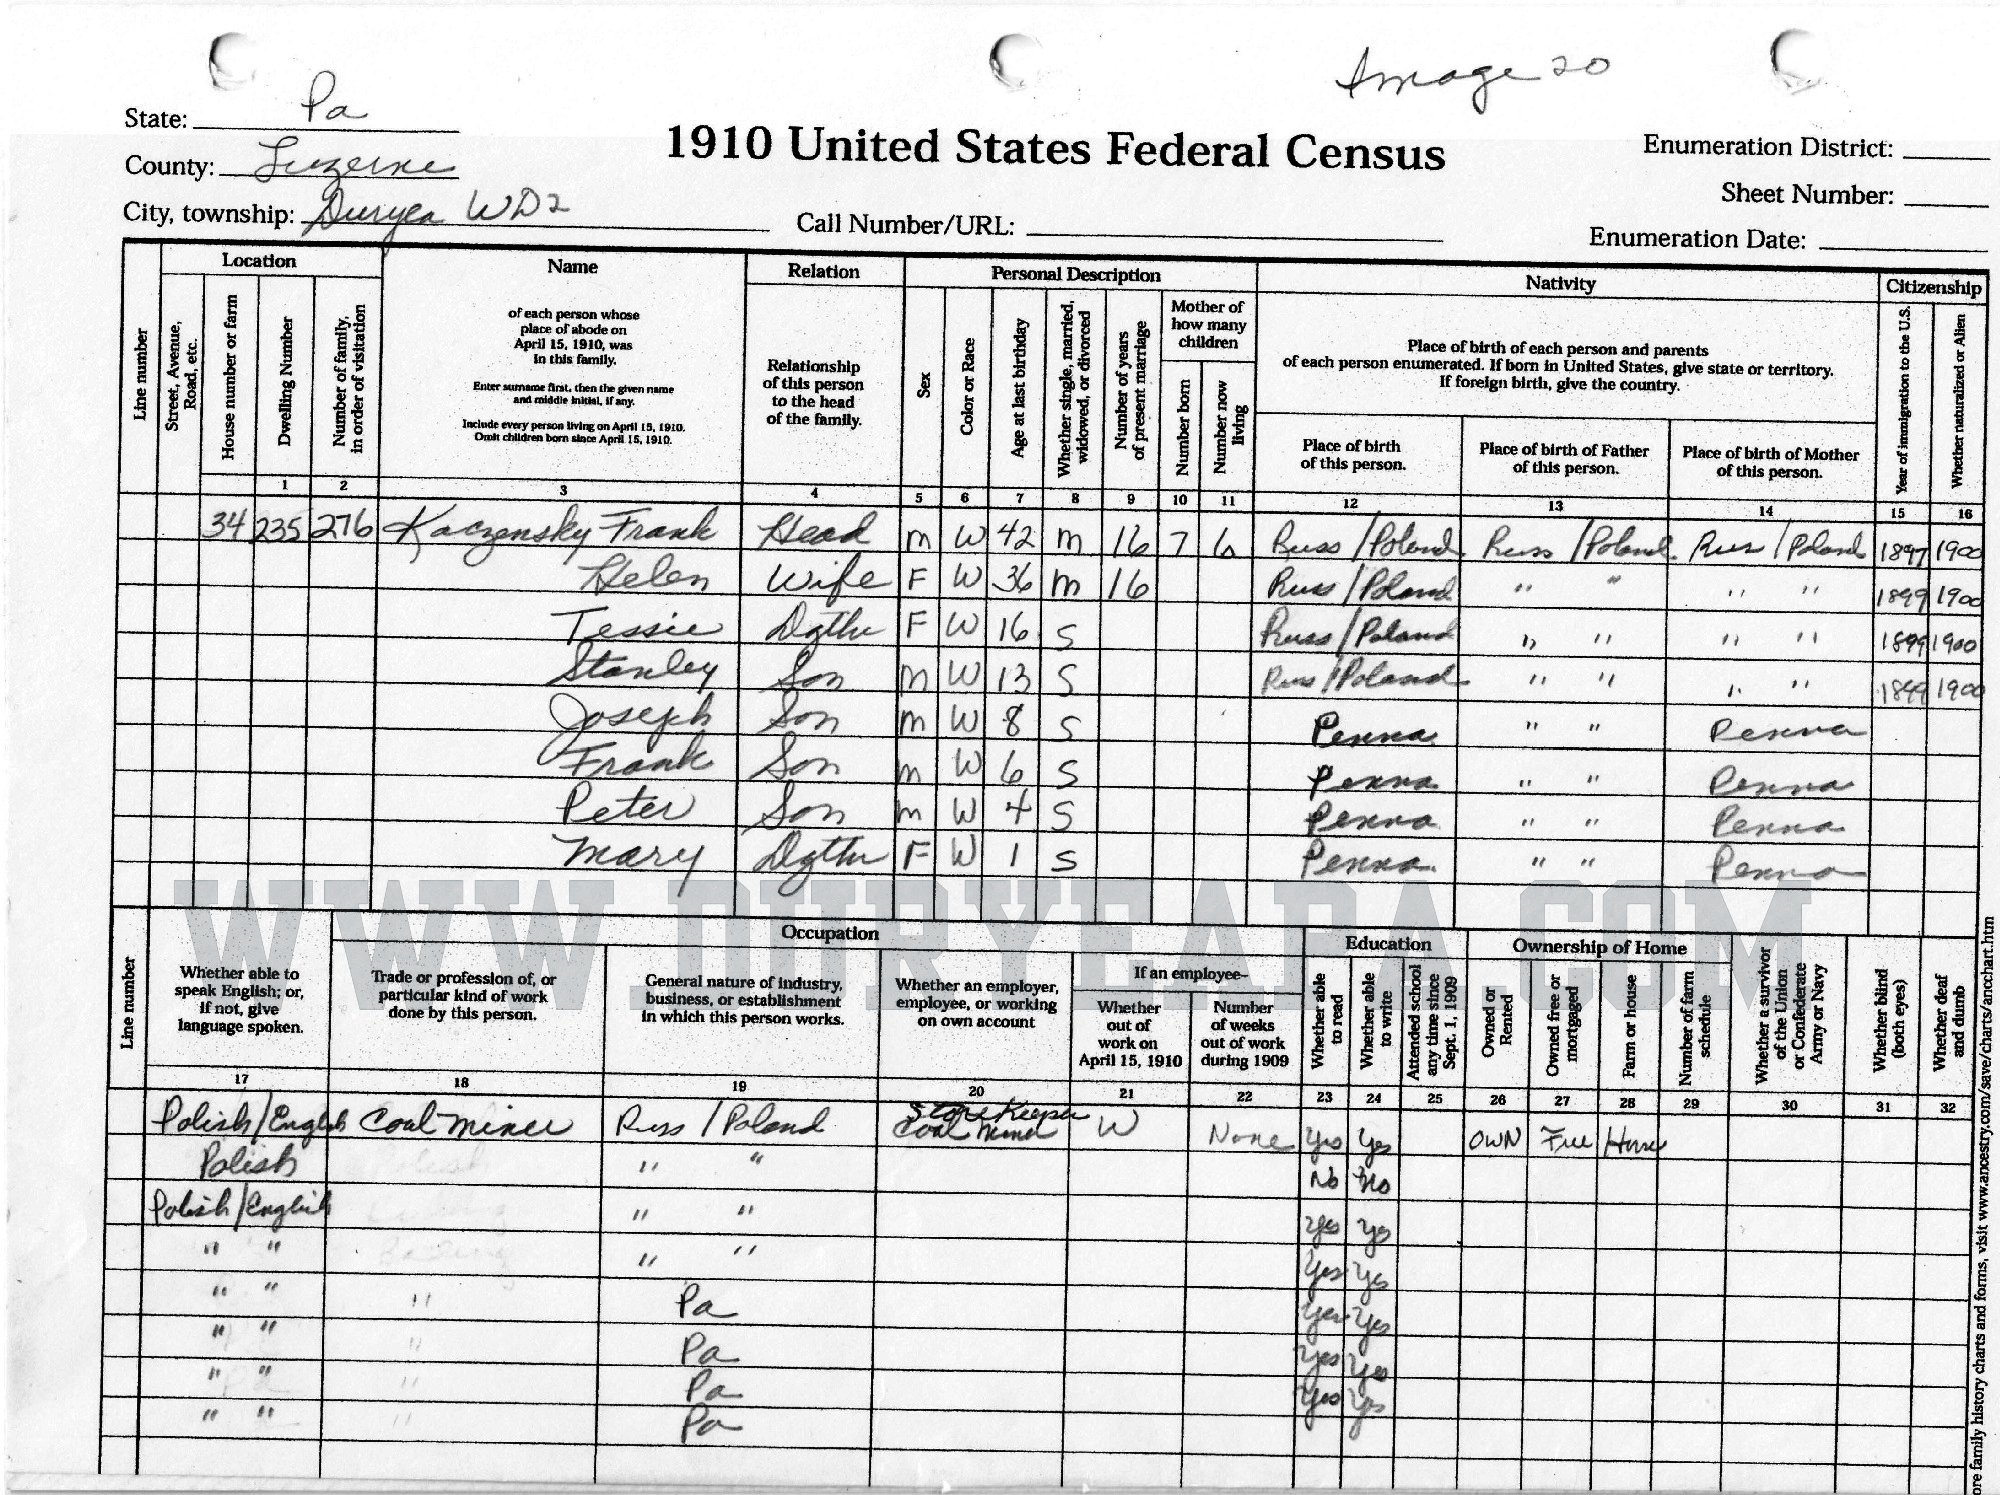 Image 20
State: Pa
County: Luzerne
City, township: Duryea WD2
1910 United States Federal Census
Call Number/URL:
Enumeration District:
Sheet Number:
Enumeration Date:
Line number
Location
Street, Avenue, Road, etc.
House number or farm
Dwelling Number
Number of family, in order of visitation
Name
of each person whose
place of abode on
April 15, 1910, was
in this family.
Enter surname first, then the given name
and middle initial, if any.
Include every person living on April 15, 1910.
Omit children born since April 15, 1910.
Relation
Relationship
of this person
to the head
of the family.
Personal Description
Sex
Color or Race
Age at last birthday
Whether single, married, widowed, or divorced
Number of years of present marriage
Mother of
how many
children
Number born
Number now living
Nativity
Place of birth of each person and parents
of each person enumerated. If born in United States, give state or territory.
If foreign birth, give the country.
Place of birth
of this person.
Place of birth of Father
of this person.
Place of birth of Mother
of this person.
Citizenship
Year of immigration to the U.S.
Whether naturalized or Alien
1 2 3 4 5 6 7 8 9 10 11 12 13 14 15 16
34 235 276 Kaczensky Frank Head M W 42 M 16 7 6 Russ/Poland Russ/Poland Russ/Poland 1897 1900
Helen Wife F W 36 M 16 Russ/Poland " " " " 1899 1900
Tessie Dgthr F W 16 S Russ/Poland " " " " 1899 1900
Stanley Son M W 13 S Russ/Poland " " " " 1899 1900
Joseph Son M W 8 S Penna " " Penna
Frank Son M W 6 S Penna " " Penna
Peter Son M W 4 S Penna " " Penna
Mary Dgthr F W 1 S Penna " " Penna
WWW.DURYEAPA.COM
Line number
Whether able to
speak English; or,
if not, give
language spoken.
Occupation
Trade or profession of, or
particular kind of work
done by this person.
General nature of industry,
business, or establishment
in which this person works.
Whether an employer,
employee, or working
on own account
If an employee–
Whether
out of
work on
April 15, 1910
Number
of weeks
out of work
during 1909
Education
Whether able to read
Whether able to write
Attended school any time since Sept. 1, 1909
Ownership of Home
Owned or Rented
Owned free or mortgaged
Farm or house
Number of farm schedule
Whether a survivor of the Union or Confederate Army or Navy
Whether blind (both eyes)
Whether deaf and dumb
17 18 19 20 21 22 23 24 25 26 27 28 29 30 31 32
Polish/English Coal Miner Russ/Poland Store Keeper Coal W None Yes Yes OWN Free
Polish " " No No
Polish/English " " Yes Yes
" " " " Yes Yes
" " " Pa Yes Yes
" " " Pa Yes Yes
" " " Pa Yes Yes
" " " Pa
ore family history charts and forms, visit www.ancestry.com/save/charts/ancchart.htm